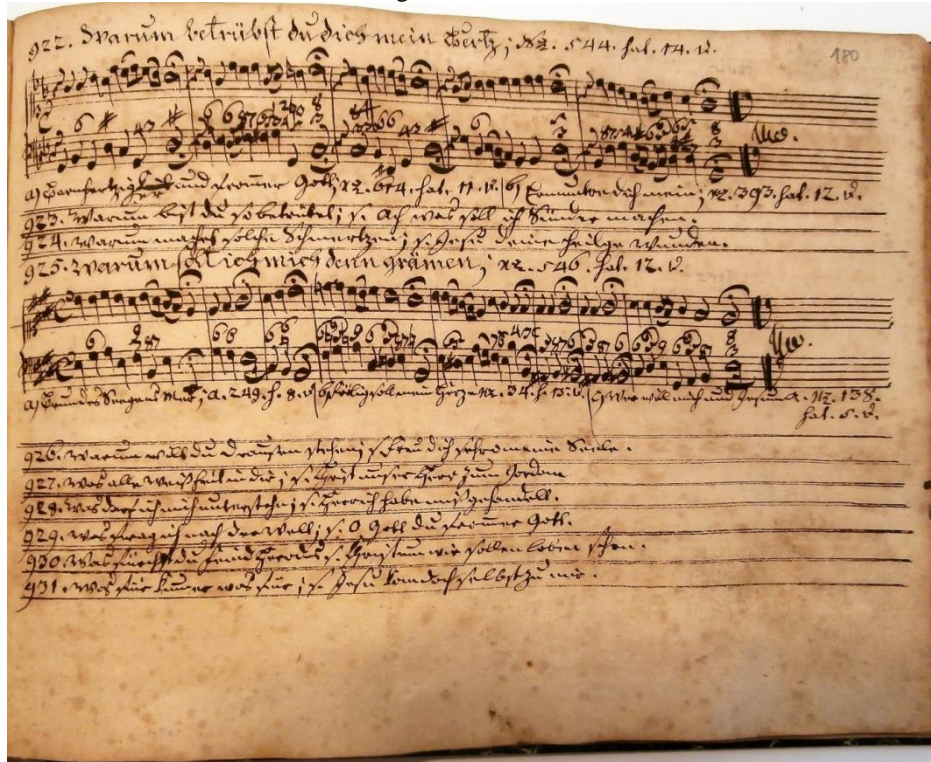 922. Warum betrübst du dich mein Hertz; Nr. 544. hat. 14. V.
180
a) Barmhertziger und frommer Gott; Nr. 614. hat. 11. V. b) Ermuntre dich mein; Nr. 393. hat. 12. V.
923. Warum bist du so betrübet; s. Ach was soll ich Sünder machen.
924. Warum machet solche Schmertzen; s. Jesu deine heilge Wunden.
925. Warum solt ich mich denn grämen; Nr. 546. hat. 12. V.
a) Grund des Seegens; a. 249. h. 8. V. b) Frölig soll mein Hertze Nr. 34. h. 15. V. c) Wer will mich von Jesu Nr. 138.
hat. 5. V.
926. Warum willt du draussen stehen; s. Freu dich sehr o meine Seele.
927. Was alle Weißheit in der; s. Christ unser Herr zum Jordan
928. Was darf ich mich unterstehn; s. Herr ich habe mißgehandelt.
929. Was frag ich nach der Welt; s. O Gott du frommer Gott.
930. Was fürchst du Feind Herodes s. Christum wir sollen loben schon.
931. Was für Kummer was für; s. Jesu kom doch selbst zu mir.